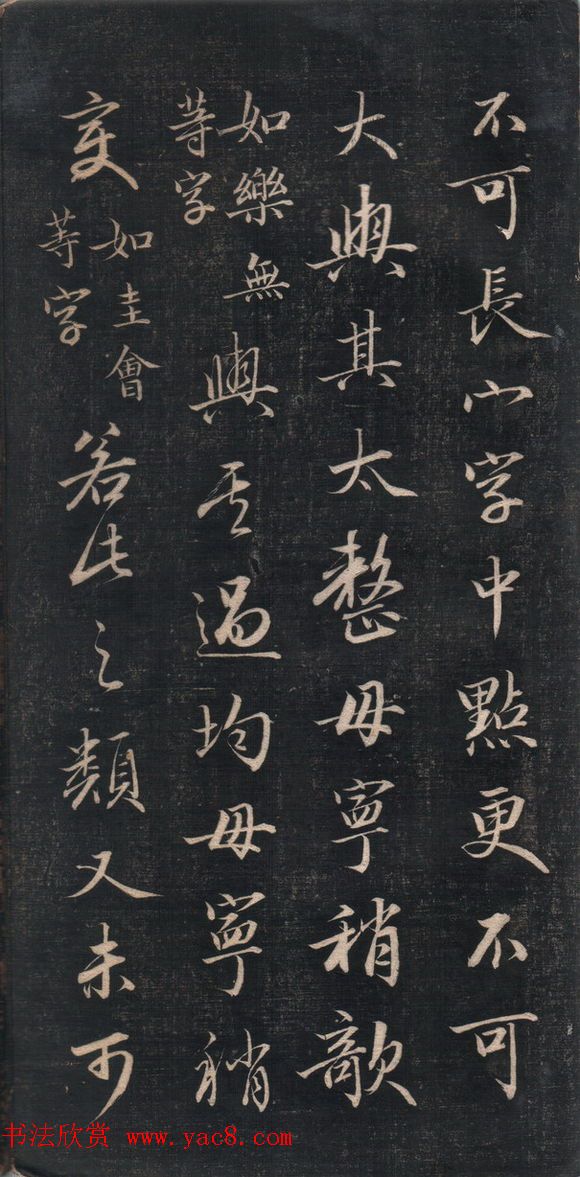 不可長宀字中點更不可
大與其太整毋寧稍欹
如樂無
等字
與其過均毋寧稍
变
如圭會
等字
若此之類又未可
书法欣赏 www.yac8.com